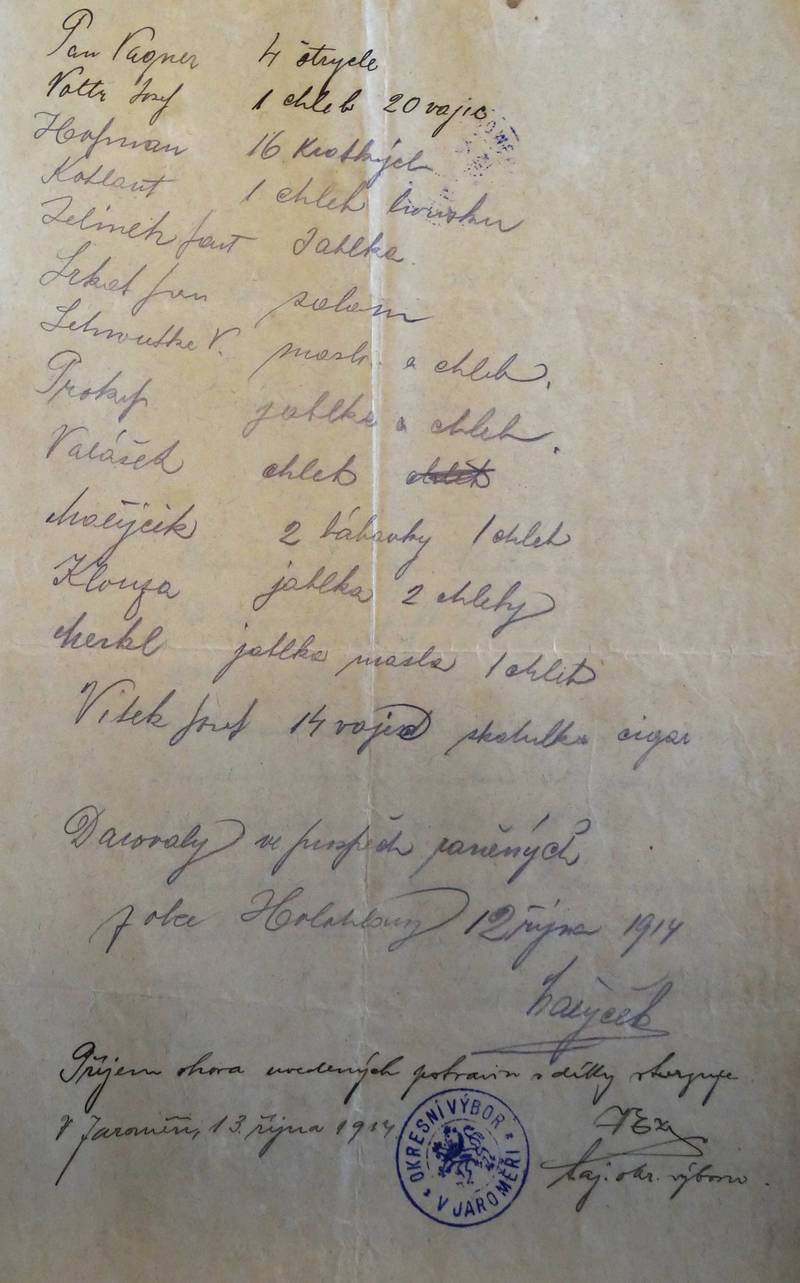 Pan Vagner 4 štrycle
Votr Josef 1 chleb 20 vajec
Hofman 16 kratkých
Kotlant 1 chleb
Jelinek jablka
salam
V. maslo a chleb.
Prokop jablka a chleb.
Valášek chleb chleb
Matýcik 2 bábovky 1 chleb
Klouza jablka 2 chleby
Merkl jablka masla 1 chleb
Vítek Josef 14 vajec skatulka cigar
Darovaly ve prospěch raněných
z obce Holohlavy 12 října 1914
Příjem shora uvedených potravin s díky stvrzuje
V Jaroměři, 13. října 1914
OKRESNÍ VÝBOR V JAROMĚŘI
taj. okr. výboru.